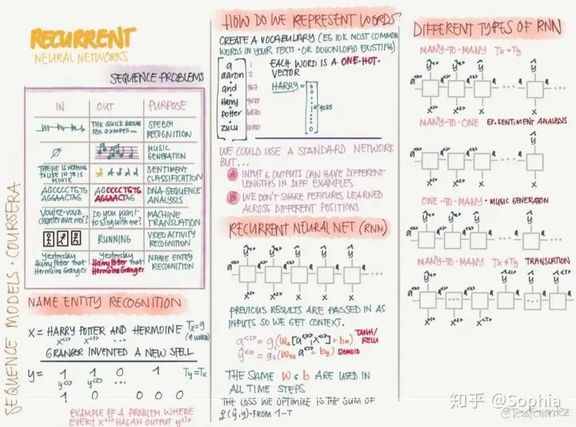 RECURRENT
NEURAL NETWORKS
SEQUENCE PROBLEMS
IN OUT PURPOSE
THE QUICK BROWN
FOX JUMPED...
SPEECH
RECOGNITION
MUSIC
GENERATION
THERE IS NOTHING
TO LIKE IN THIS
MOVIE
SENTIMENT
CLASSIFICATION
AGCCCCTGTG
AGGAACTAG
AGCCCCTGTG
AGGAACTAG
DNA-SEQUENCE
ANALYSIS
Voulez-vous
chanter avec moi?
Do you want
to sing with me?
MACHINE
TRANSLATION
RUNNING
VIDEO ACTIVITY
RECOGNITION
Yesterday
Harry Potter met
Hermione Granger
Yesterday
Harry Potter met
Hermione Granger
NAME ENTITY
RECOGNITION
SEQUENCE MODELS · COURSERA
NAME ENTITY RECOGNITION
X = HARRY POTTER AND HERMOINE Tx=9
X<1> X<2> X<3> ...
GRANGER INVENTED A NEW SPELL
y = 1 1 0 1 Ty=Tx
y<1> y<2> y<3> ...
1 0 0 0 0
EXAMPLE OF A PROBLEM WHERE
EVERY X HAS AN OUTPUT y
HOW DO WE REPRESENT WORDS?
CREATE A VOCABULARY (EG 10K MOST COMMON
WORDS IN YOUR TEXTS - OR DOWNLOAD EXISTING)
a 1
aaron 2
and
Harry 4075
Potter
zulu
EACH WORD IS A ONE-HOT-
VECTOR
HARRY
4075
WE COULD USE A STANDARD NETWORK
BUT...
A INPUT & OUTPUTS CAN HAVE DIFFERENT
LENGTHS IN DIFF EXAMPLES
B WE DON'T SHARE FEATURES LEARNED
ACROSS DIFFERENT POSITIONS
RECURRENT NEURAL NET (RNN)
PREVIOUS RESULTS ARE PASSED IN AS
INPUTS SO WE GET CONTEXT.
TANH/
RELU
SIGMOID
THE SAME W & b ARE USED IN
ALL TIME STEPS
THE LOSS WE OPTIMIZE IS THE SUM OF
ℒ(ŷ,y) FROM 1-T
DIFFERENT TYPES OF RNN
MANY-TO-MANY Tx=Ty
MANY-TO-ONE EX. SENTIMENT ANALYSIS
ONE-TO-MANY · MUSIC GENERATION
MANY-TO-MANY Tx≠Ty TRANSLATION
知乎 @Sophia
@TessFerrandez